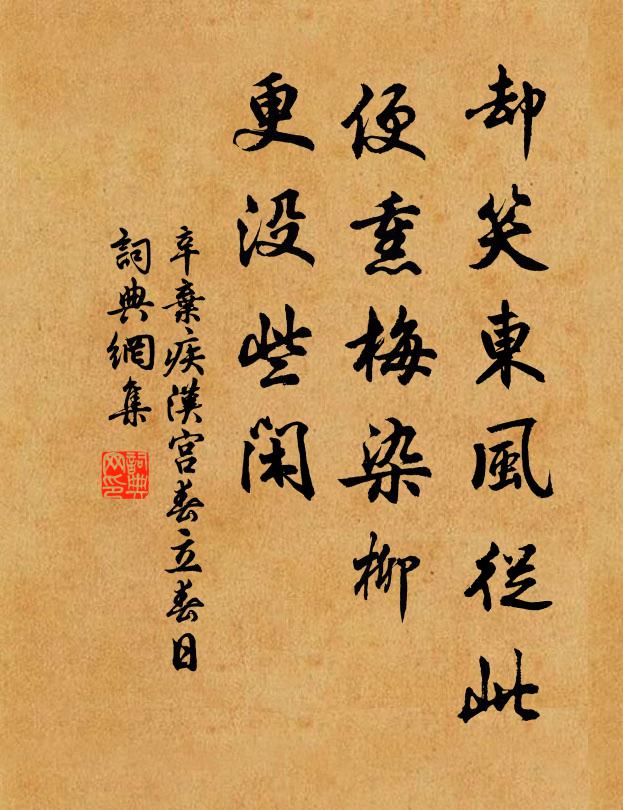 却笑東風從此
便熏梅染柳
更没些闲
辛棄疾漢宮春立春日
詞典網集
詞典网印